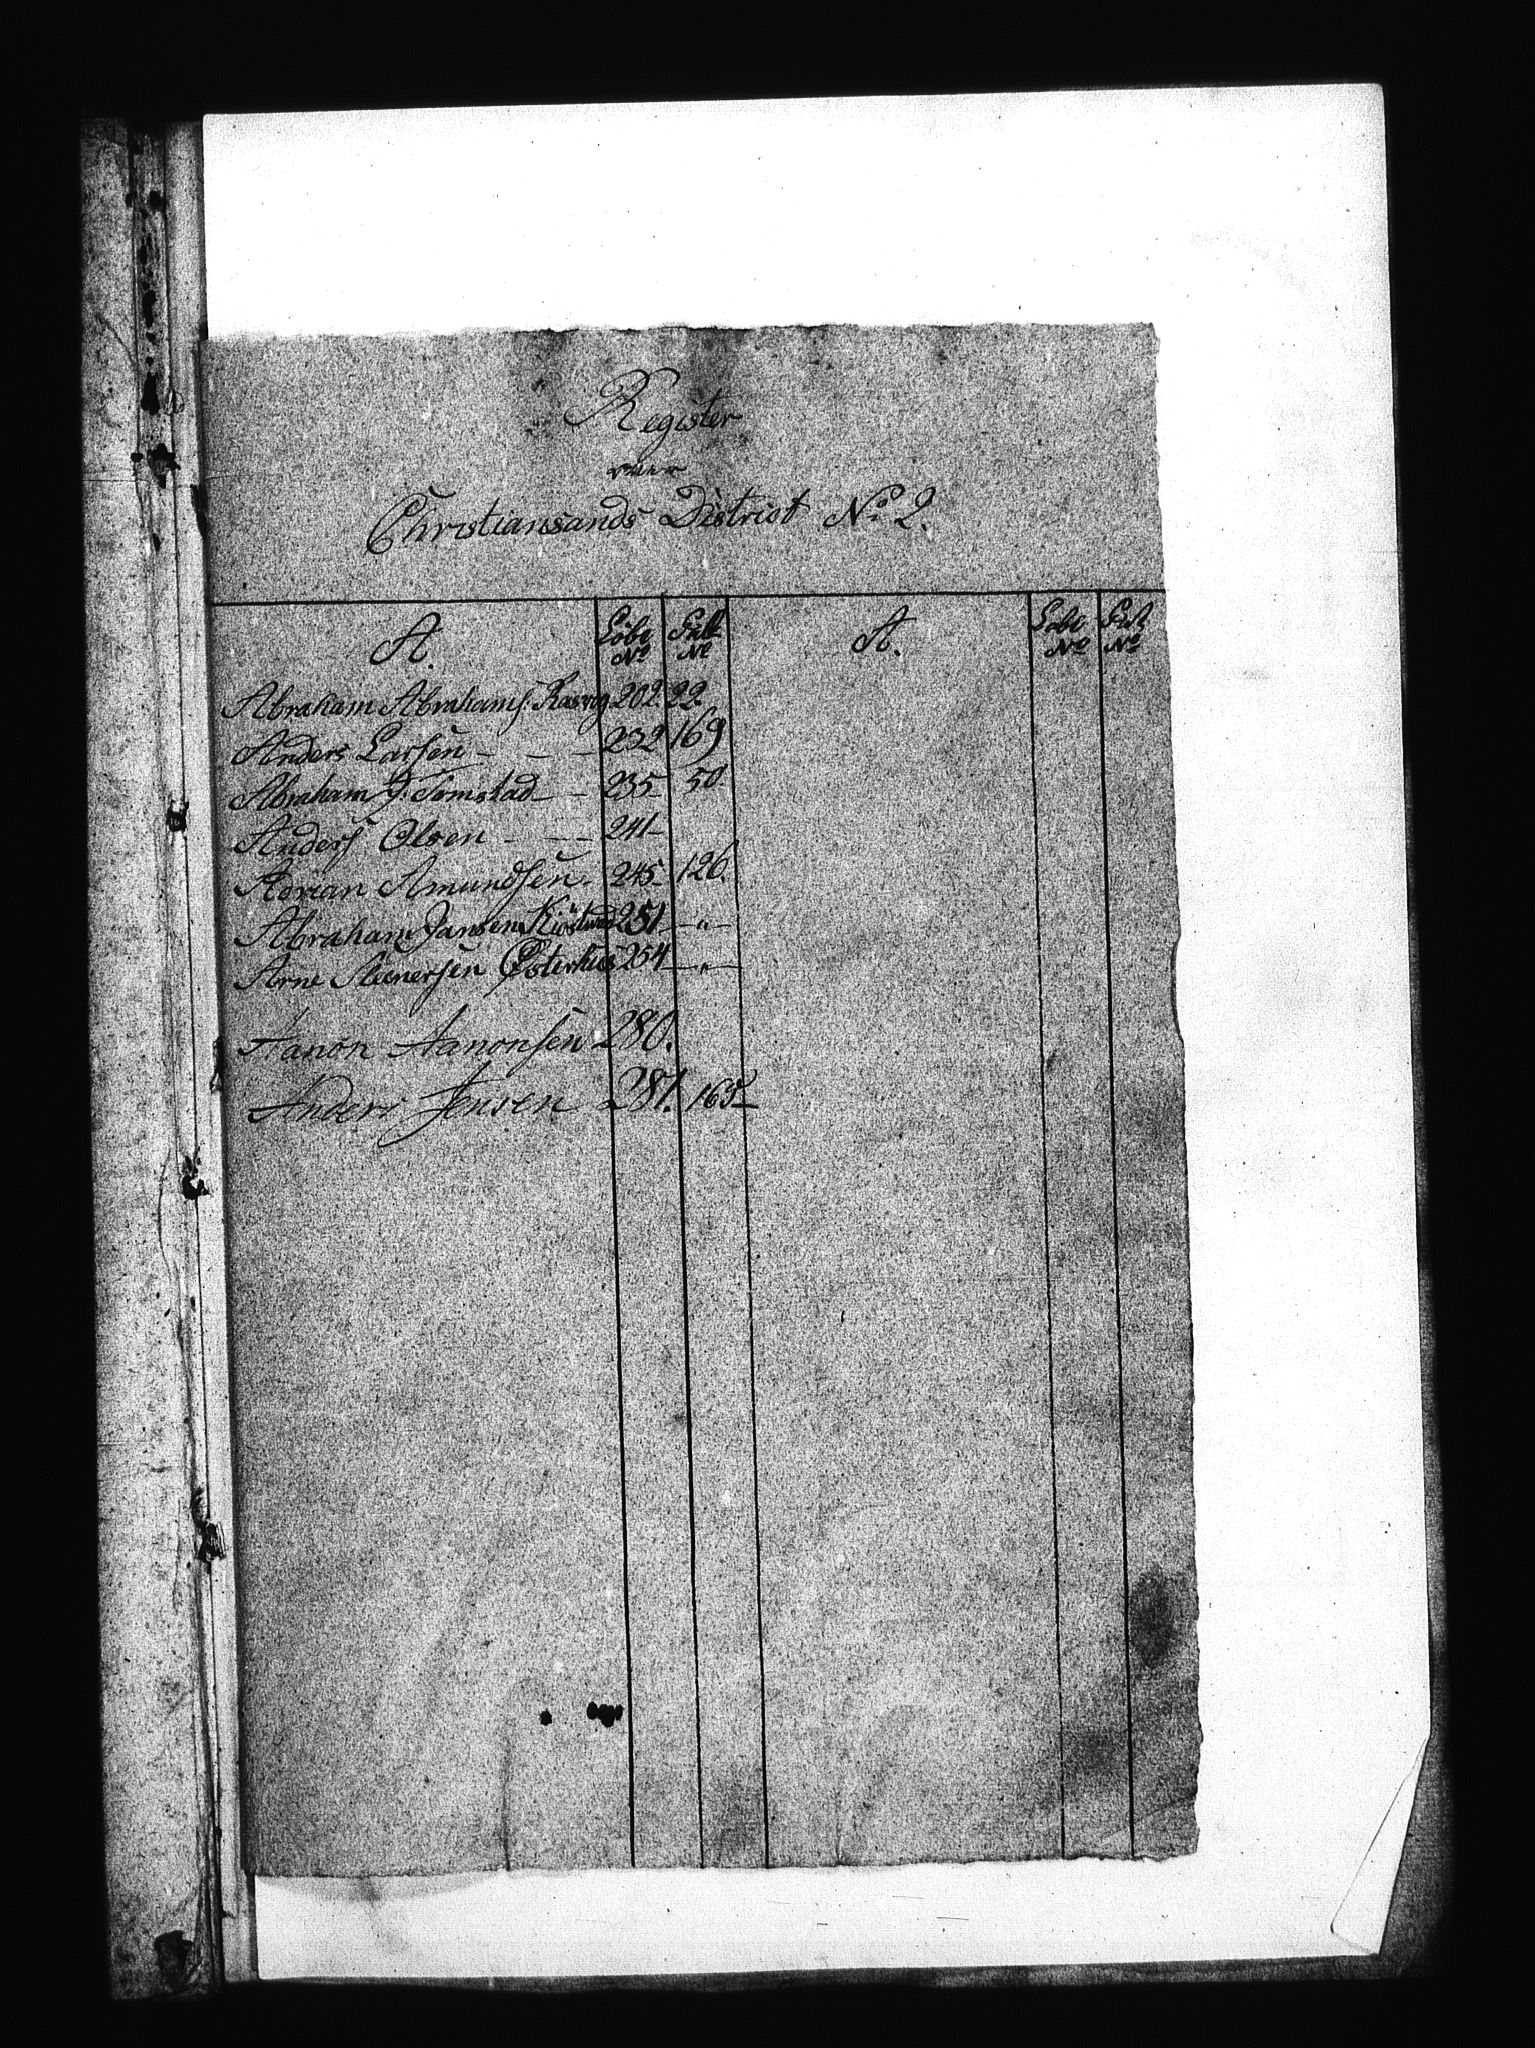 Register
over
Christiansands District No 2.
A. Löbe No Fol No A. Löbe No Fol No
Abraham Abrahams: Rasvog 202. 22.
Anders Larsen 232 169
Abraham J: Tomstad 235 50.
Anders Olsen 241
Adrian Amundsen. 245 126.
Abraham Jansen 251 "
Arne Steenersen Østerhus 254 "
Aanon Aanonsen 280.
Anders Jensen 281. 165